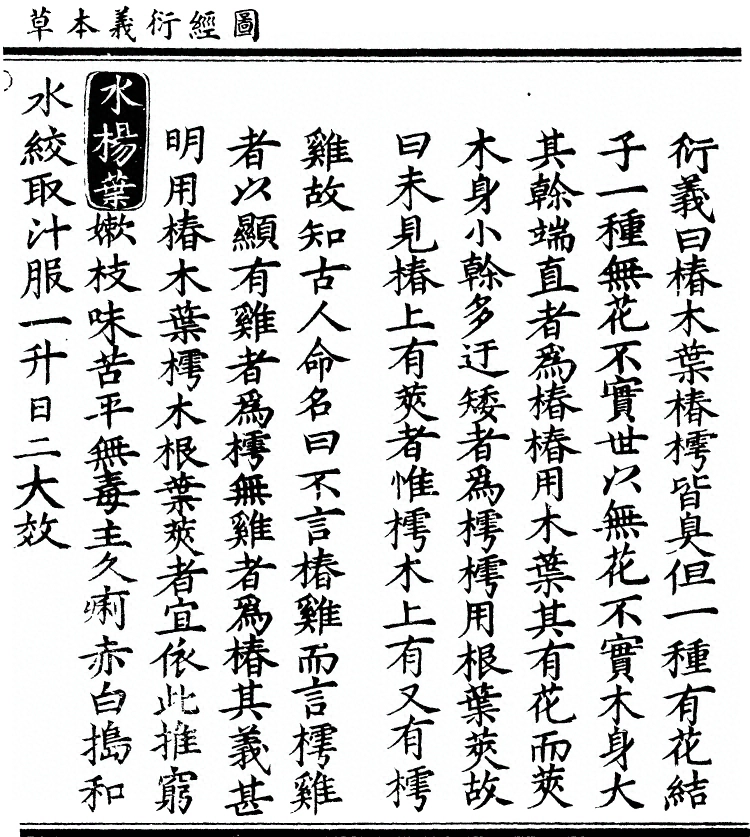 圖經衍義本草
衍義曰椿木葉椿樗皆臭但一種有花結
子一種無花不實世以無花不實木身大
其榦端直者為椿椿用木葉其有花而莢
木身小榦多迂矮者為樗樗用根葉莢故
曰未見椿上有莢者惟樗木上有又有樗
雞故知古人命名曰不言椿雞而言樗雞
者以顯有雞者為樗無雞者為椿其義甚
明用椿木葉樗木根葉莢者宜依此推窮
水楊葉嫰枝味苦平無毒主久痢赤白搗和
水絞取汁服一升日二大效